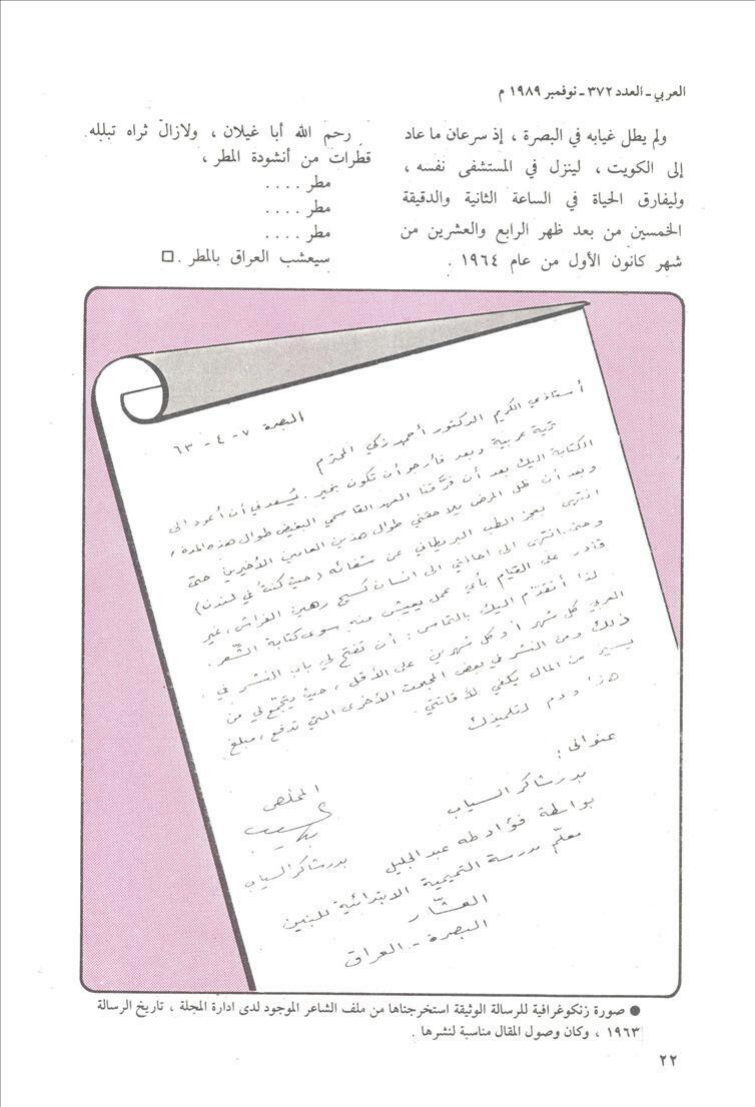 العربي ـ العدد ٣٧٢ ـ نوفمبر ١٩٨٩ م
ولم يطل غيابه في البصرة ، إذ سرعان ما عاد
إلى الكويت ، لينزل في المستشفى نفسه ،
وليفارق الحياة في الساعة الثانية والدقيقة
الخمسين من بعد ظهر الرابع والعشرين من
شهر كانون الأول من عام ١٩٦٤ .
رحم الله أبا غيلان ، ولازال ثراه تبلله
قطرات من أنشودة المطر ،
مطر ....
مطر ....
مطر ....
سيعشب العراق بالمطر . □
البصرة ٧ - ٤ - ٦٣
أستاذي الكريم الدكتور أحمد زكي المحترم
تحية عربية وبعد فأرجو أن تكون بخير . يُسعدني أن أعود الى
الكتابة اليك بعد أن فرّقنا العهد القاسمي البغيض طوال هذه المدة ،
وبعد أن ظل المرض يلاحقني طوال هذين العامين الأخيرين حتى
انتهى بعجز الطب البريطاني عن شفائه (حيث كنتُ في لندن)
وحتى انتهى الى احالتي الى انسان كسيح رهين الفراش ، غير
قادر على القيام بأي عمل يعيش منه سوى كتابة الشّعر .
لذا أتقدّم اليك بالتماس : أن تفتح لي باب النشر في
العربي كل شهر أو كل شهرين على الأقل ، حيث يتجمّع لي من
ذلك ومن النشر في بعض المجلات الأخرى التي تدفع ، مبلغ
يسير من المال يكفي للأقانتي
هذا ودم لتلميذك
المخلص
بدر شاكر السياب
عنواني :
بدر شاكر السياب
بواسطة فؤاد طه عبد الجليل
معلّم مدرسة التميمية الابتدائية للبنين
العشّار
البصرة - العراق
● صورة زنكوغرافية للرسالة الوثيقة استخرجناها من ملف الشاعر الموجود لدى ادارة المجلة ، تاريخ الرسالة
١٩٦٣ ، وكان وصول المقال مناسبة لنشرها .
٢٢